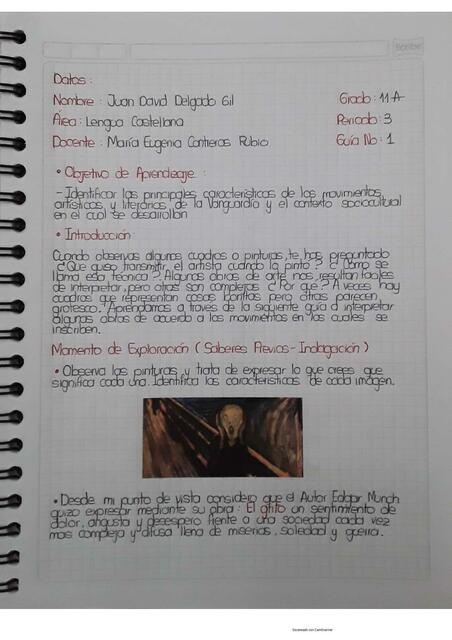 Scribe
Datos :
Nombre : Juan David Delgado Gil Grado : 11 A
Área : Lengua Castellana Periodo : 3
Docente : María Eugenia Contreras Rubio Guía No : 1
• Objetivo de Aprendizaje :
- Identificar las principales características de los movimientos
artísticos y literarios, de la Vanguardia y el contexto sociocultural
en el cual se desarrollan
• Introducción:
Cuando observas algunos cuadros o pinturas, te has preguntado
¿ Que quiso transmitir el artista cuando lo pinto ? ¿ Como se
llama esa técnica ? Algunas obras de arte nos resultan fáciles
de interpretar, pero otras son complejas ¿ Por que ? A veces hay
cuadros que representan cosas bonitas pero otros parecen
grotesco. Aprendamos a través de la siguiente guía a interpretar
algunas obras de acuerdo a los movimientos en los cuales se
inscriben.
Momento de Exploración ( Saberes Previos - Indagación )
• Observa las pinturas y trata de expresar lo que crees que
significa cada una. Identifica las características de cada imagen.
• Desde mi punto de vista considero que el Autor Edgar Munch
quizo expresar mediante su obra : El grito un sentimiento de
dolor, angustia y desespero frente a una sociedad cada vez
mas compleja y difusa llena de miserias, soledad y guerra.
Escaneado con CamScanner